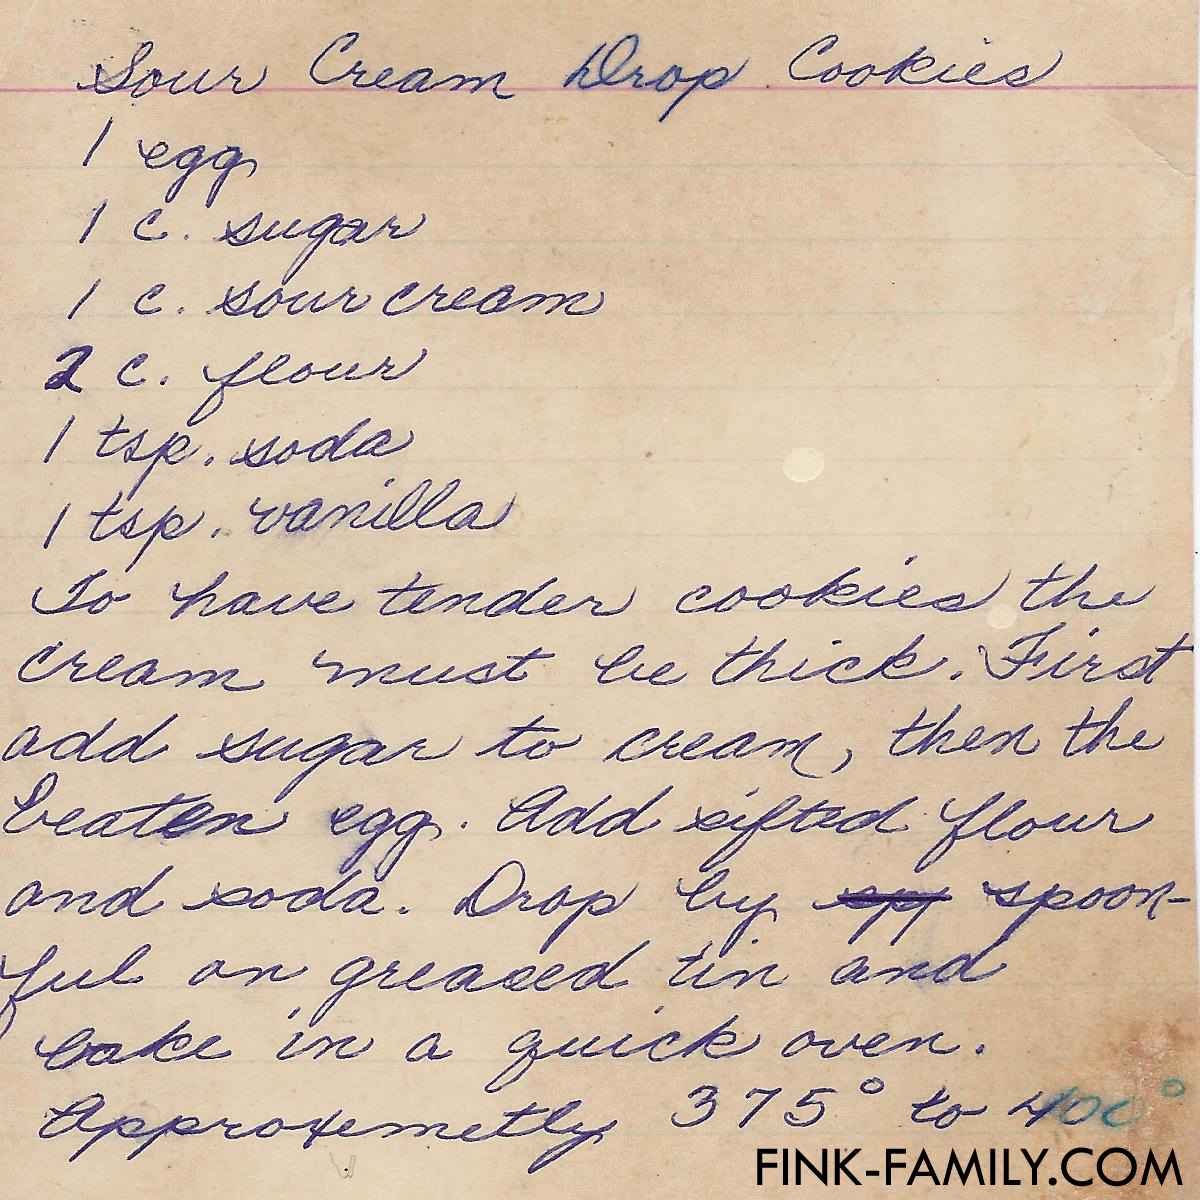 Sour Cream Drop Cookies
1 egg
1 c. sugar
1 c. sour cream
2 c. flour
1 tsp. soda
1 tsp. vanilla
To have tender cookies the
cream must be thick. First
add sugar to cream, then the
beaten egg. Add sifted flour
and soda. Drop by sp spoon-
ful on greased tin and
bake in a quick oven.
Approxemetly 375° to 400°
FINK-FAMILY.COM